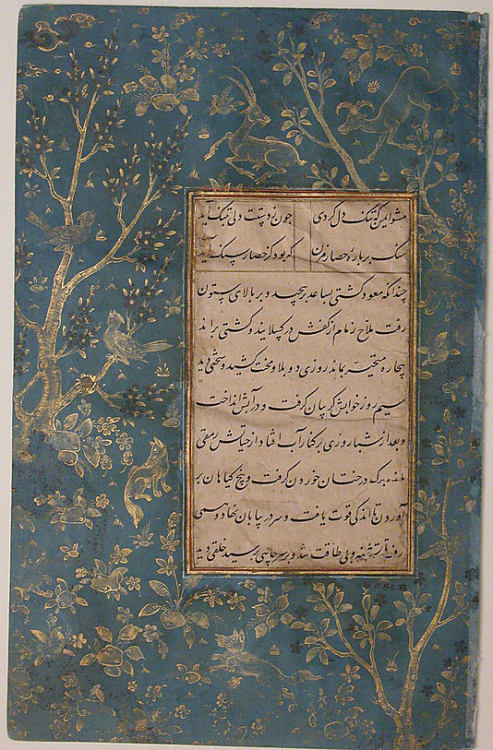 مشو ایمن که تنک دل کردی چون ز دستت دلی بتنک آید
سنک بر باره حصار مزن که بود کز حصار سنک آید
چندانکه مقود کشتی بساعد بر پیچید و بر بالای ستون
رفت ملاح زمام از کفش در کسلانید و کشتی براند
بیچاره متحیر بماند روزی دو بلا و محنت کشید و سختی دید
سیم روز خوابش کریبان کرفت و در آبش انداخت
و بعد از شبا روزی بر کنار آب افتاد از حیاتش رمقی
مانده برک درختان خوردن کرفت و بیخ کیاهان بر
آوردن تا اندکی قوت یافت و سر در بیابان نهاد و
تا تشنه و بی طاقت شد و بر سر چاهی برسید خلقی دید